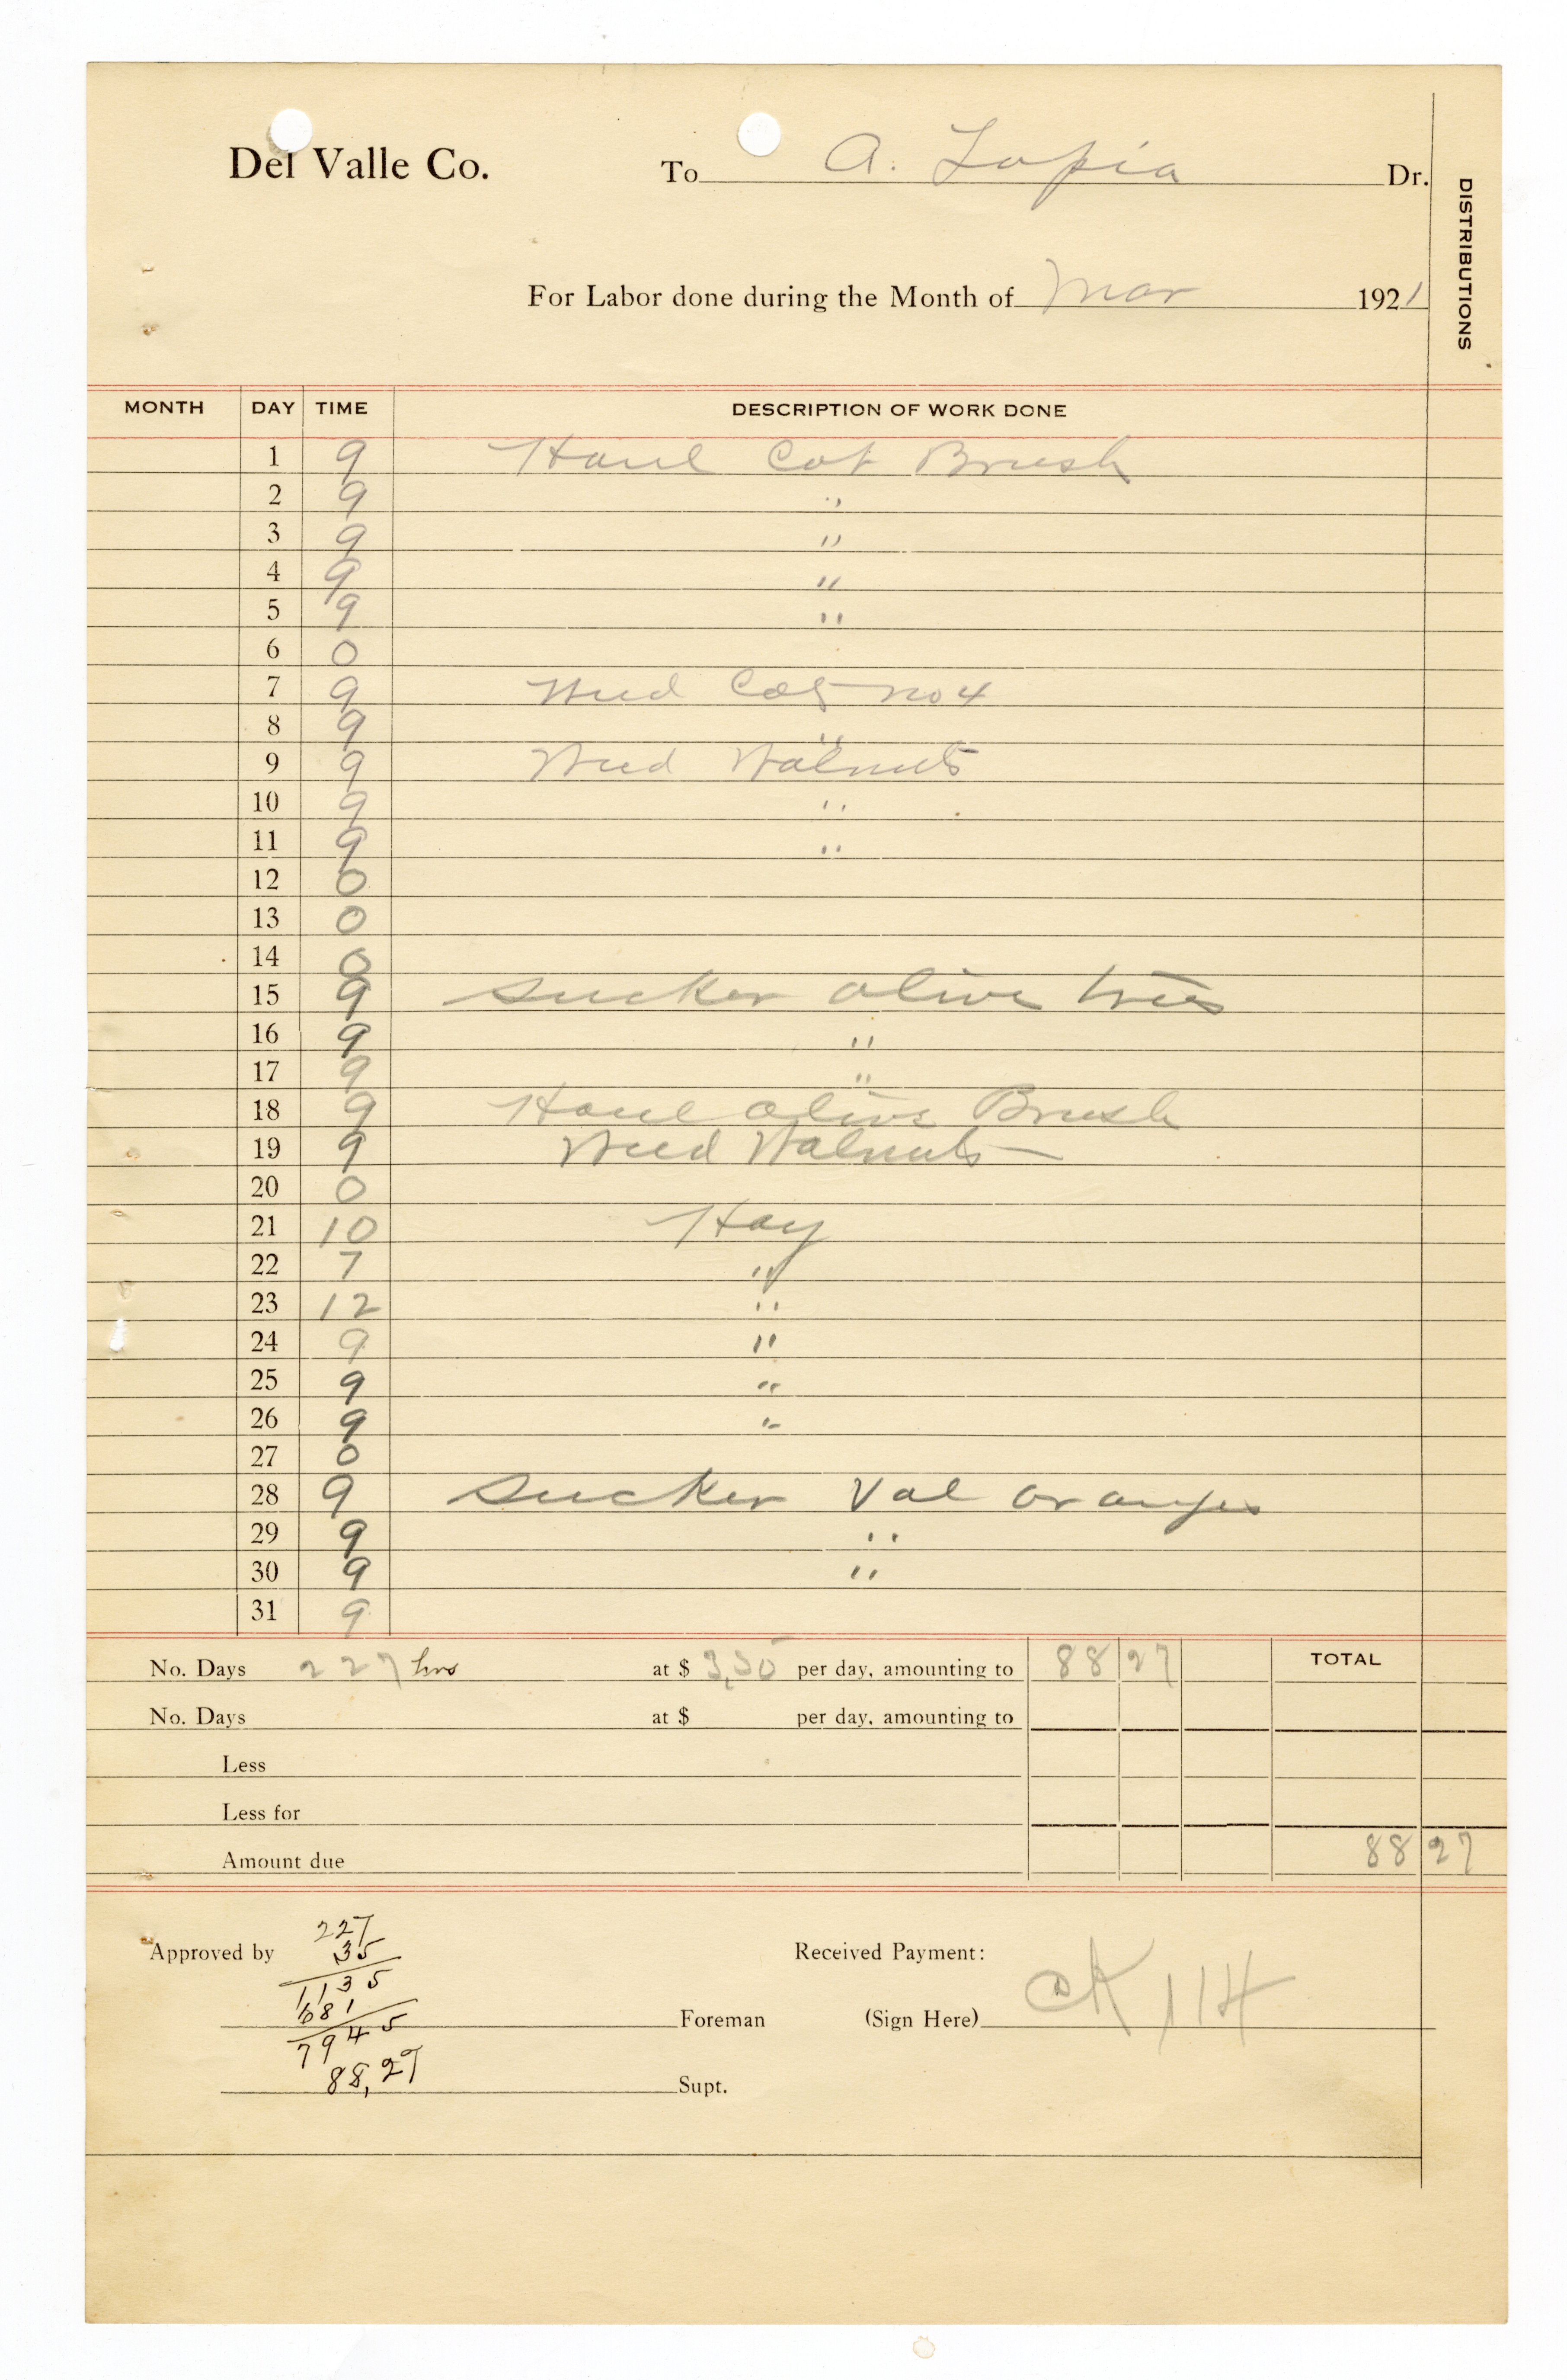 Del Valle Co. To A. Tapia Dr.
DISTRIBUTIONS
For Labor done during the Month of Mar 1921
MONTH DAY TIME DESCRIPTION OF WORK DONE
1 9 Haul Cot Brush
2 9 "
3 9 "
4 9 "
5 9 "
6 0
7 9 Weed Cots no 4
8 9 "
9 9 Weed Walnuts
10 9 "
11 9 "
12 0
13 0
14 0
15 9 sucker olive trees
16 9 "
17 9 "
18 9 Haul olive Brush
19 9 Weed Walnuts
20 0
21 10 Hay
22 7 "
23 12 "
24 9 "
25 9 "
26 9 "
27 0
28 9 sucker Val oranges
29 9 "
30 9 "
31 9
No. Days 227 hrs at $ 3,50 per day, amounting to 88 27 TOTAL
No. Days at $ per day, amounting to
Less
Less for
Amount due 88 27
Approved by
227
35
1135
681
7945
88,27
Foreman
Supt.
Received Payment:
(Sign Here) CK 114